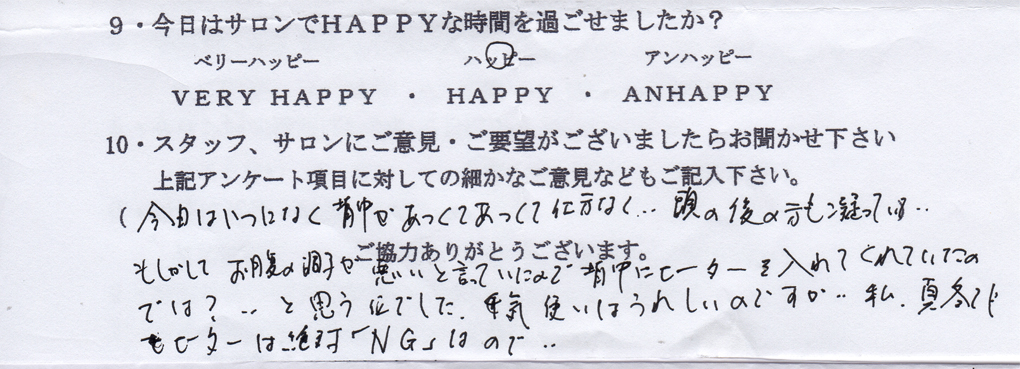 9・今日はサロンでHAPPYな時間を過ごせましたか？
ベリーハッピー　ハッピー　アンハッピー
VERY HAPPY ・ HAPPY ・ ANHAPPY
10・スタッフ、サロンにご意見・ご要望がございましたらお聞かせ下さい
上記アンケート項目に対しての細かなご意見などもご記入下さい。
(今日はいつになく背中があつくてあつくて仕方なく… 頭の後の方も凝っている‥
ご協力ありがとうございます。
もしかして お腹の調子が悪いと言っていたので背中にヒーターを入れてくれていたの
では？‥と思う位でした。気使いはうれしいのですが‥私、真冬でも
ヒーターは絶対「NG」なので‥